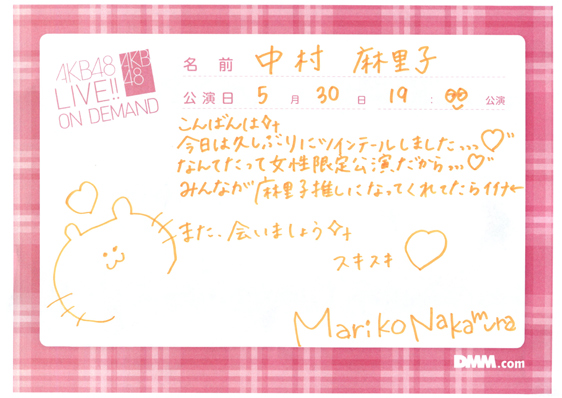 AKB48
LIVE!!
ON DEMAND
AKB
48
名前 中村 麻里子
公演日 5月30日 19:00 公演
こんばんは
今日は久しぶりにツインテールしました、、、♡"
なんてたって女性限定公演だから、、、♡"
みんなが麻里子推しになってくれてたらイイナ←
また、会いましょう
スキスキ ♡
Mariko Nakamura
DMM.com